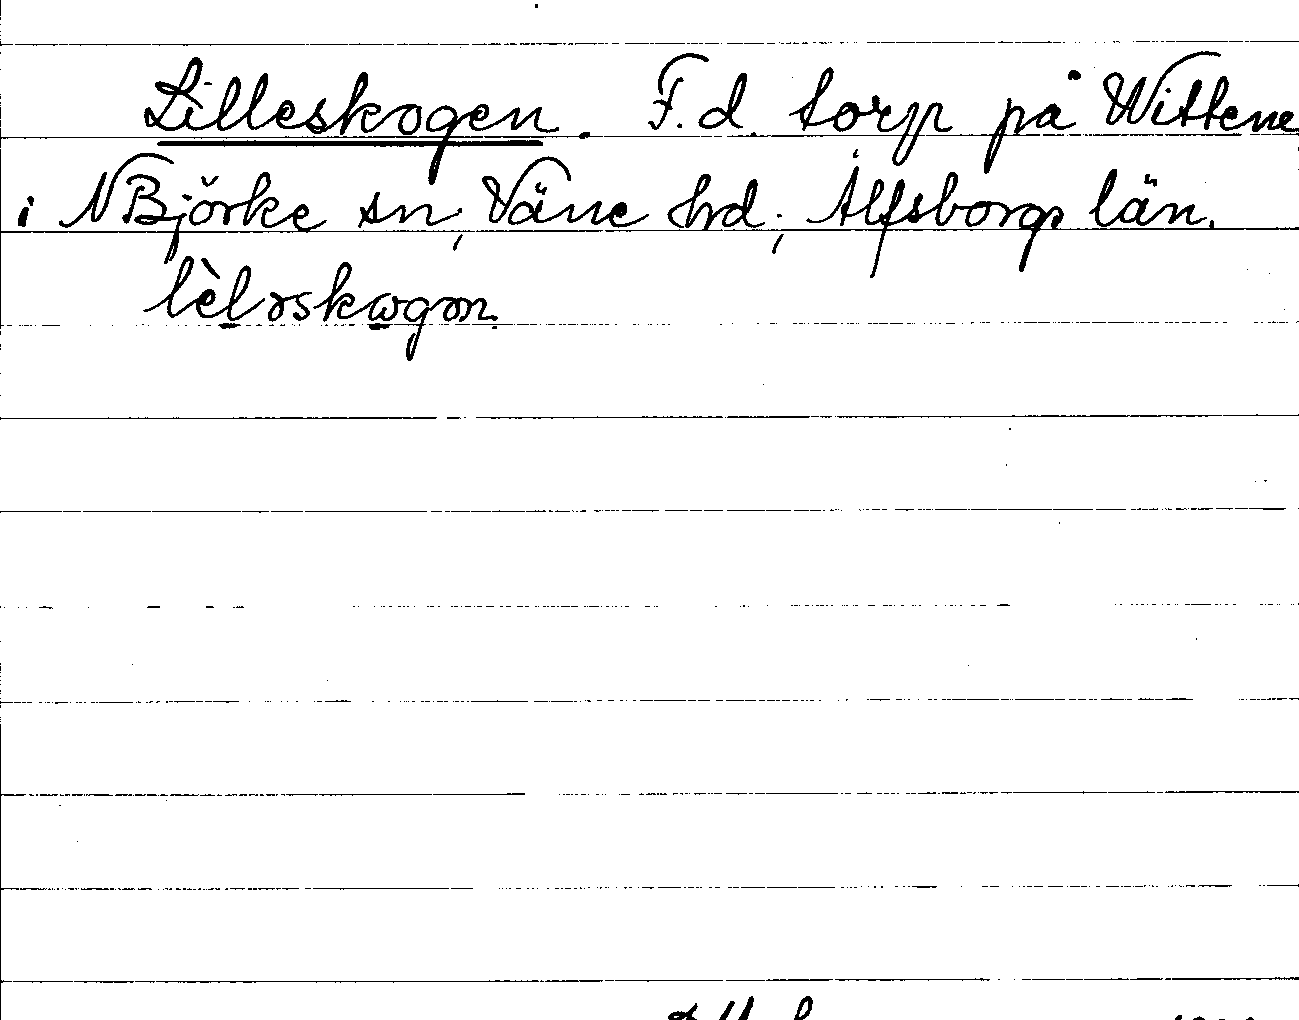 Lilleskogen. F.d. torp på Wittene
i NBjörke sn, Väne hd; Älfsborgs län.
lèləskogən.